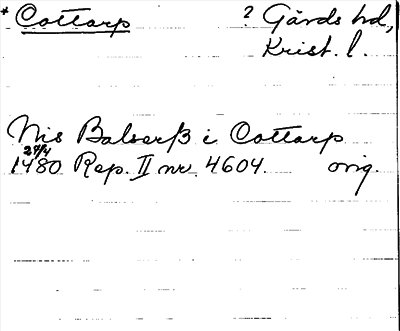 * Cottarp ? Gärds hd,
Krist. l.
Nis Balserß i Cottarp
27/4
1480 Rep. II nr. 4604. orig.